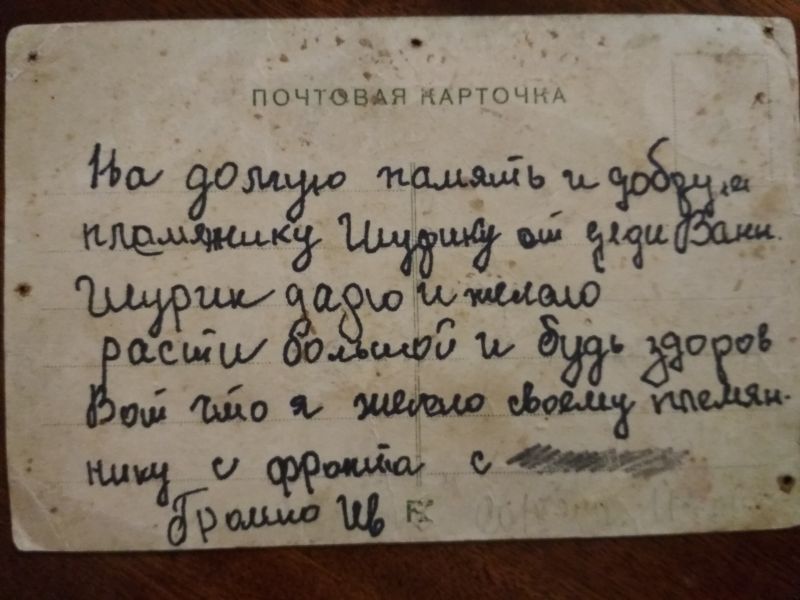 ПОЧТОВАЯ КАРТОЧКА
На долгую память и добрую
пламяжику Шурику от деди Вани.
Шурик дарю и желаю
расти большой и будь здоров
Вот что я желаю своему племян-
нику с фронта с
Громко Ив